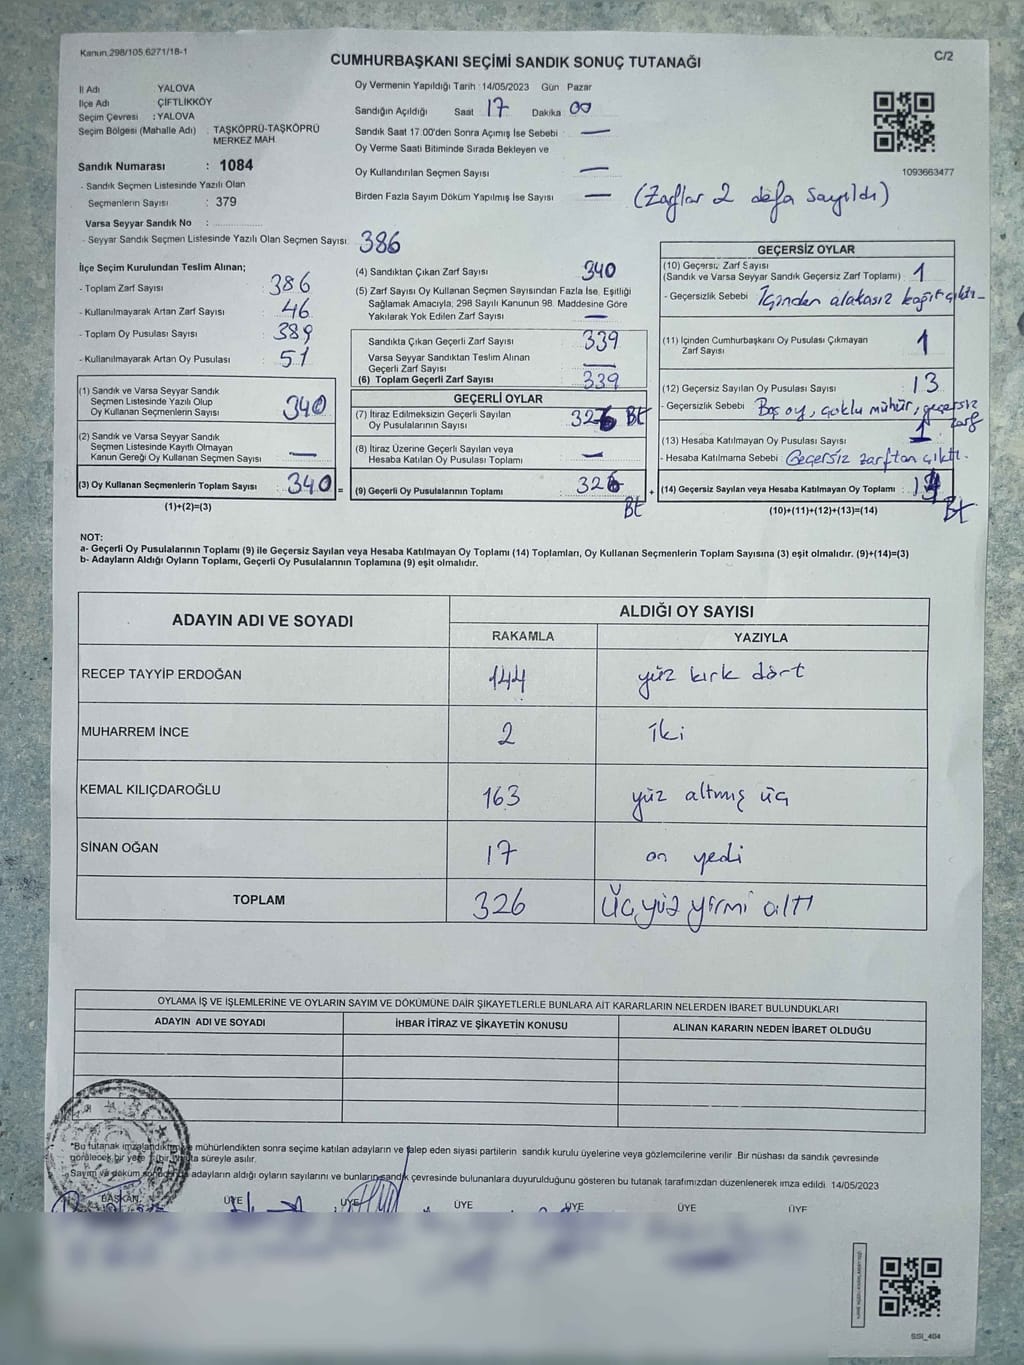 Kanun.298/105.6271/18-1
CUMHURBAŞKANI SEÇİMİ SANDIK SONUÇ TUTANAĞI
C/2
İl Adı YALOVA
İlçe Adı ÇİFTLİKKÖY
Seçim Çevresi : YALOVA
Seçim Bölgesi (Mahalle Adı) : TAŞKÖPRÜ-TAŞKÖPRÜ MERKEZ MAH.
Sandık Numarası : 1084
- Sandık Seçmen Listesinde Yazılı Olan
Seçmenlerin Sayısı : 379
Varsa Seyyar Sandık No :
- Seyyar Sandık Seçmen Listesinde Yazılı Olan Seçmen Sayısı: 386
Oy Vermenin Yapıldığı Tarih : 14/05/2023 Gün Pazar
Sandığın Açıldığı Saat 17 Dakika 00
Sandık Saat 17.00'den Sonra Açımış İse Sebebi : —
Oy Verme Saati Bitiminde Sırada Bekleyen ve
Oy Kullandırılan Seçmen Sayısı —
Birden Fazla Sayım Döküm Yapılmış İse Sayısı — (Zarflar 2 defa sayıldı)
1093663477
İlçe Seçim Kurulundan Teslim Alınan;
- Toplam Zarf Sayısı : 386
- Kullanılmayarak Artan Zarf Sayısı : 46
- Toplam Oy Pusulası Sayısı : 389
- Kullanılmayarak Artan Oy Pusulası : 51
(1) Sandık ve Varsa Seyyar Sandık
Seçmen Listesinde Yazılı Olup
Oy Kullanan Seçmenlerin Sayısı : 340
(2) Sandık ve Varsa Seyyar Sandık
Seçmen Listesinde Kayıtlı Olmayan
Kanun Gereği Oy Kullanan Seçmen Sayısı : —
(3) Oy Kullanan Seçmenlerin Toplam Sayısı : 340 =
(1)+(2)=(3)
(4) Sandıktan Çıkan Zarf Sayısı : 340
(5) Zarf Sayısı Oy Kullanan Seçmen Sayısından Fazla İse, Eşitliği
Sağlamak Amacıyla, 298 Sayılı Kanunun 98. Maddesine Göre
Yakılarak Yok Edilen Zarf Sayısı : —
Sandıkta Çıkan Geçerli Zarf Sayısı : 339
Varsa Seyyar Sandıktan Teslim Alınan
Geçerli Zarf Sayısı : —
(6) Toplam Geçerli Zarf Sayısı : 339
GEÇERLİ OYLAR
(7) İtiraz Edilmeksizin Geçerli Sayılan
Oy Pusulalarının Sayısı : 326 Bt
(8) İtiraz Üzerine Geçerli Sayılan veya
Hesaba Katılan Oy Pusulası Toplamı : —
(9) Geçerli Oy Pusulalarının Toplamı : 326 +
Bt
GEÇERSİZ OYLAR
(10) Geçersiz Zarf Sayısı
(Sandık ve Varsa Seyyar Sandık Geçersiz Zarf Toplamı) : 1
- Geçersizlik Sebebi İçinden alakasız kağıt çıktı
(11) İçinden Cumhurbaşkanı Oy Pusulası Çıkmayan
Zarf Sayısı : 1
(12) Geçersiz Sayılan Oy Pusulası Sayısı : 13
- Geçersizlik Sebebi Boş oy, çoklu mühür, geçersiz zarf
(13) Hesaba Katılmayan Oy Pusulası Sayısı : 1
- Hesaba Katılmama Sebebi Geçersiz zarftan çıktı.
(14) Geçersiz Sayılan veya Hesaba Katılmayan Oy Toplamı : 14
(10)+(11)+(12)+(13)=(14) Bt
NOT:
a- Geçerli Oy Pusulalarının Toplamı (9) ile Geçersiz Sayılan veya Hesaba Katılmayan Oy Toplamı (14) Toplamları, Oy Kullanan Seçmenlerin Toplam Sayısına (3) eşit olmalıdır. (9)+(14)=(3)
b- Adayların Aldığı Oyların Toplamı, Geçerli Oy Pusulalarının Toplamına (9) eşit olmalıdır.
ADAYIN ADI VE SOYADI
ALDIĞI OY SAYISI
RAKAMLA YAZIYLA
RECEP TAYYİP ERDOĞAN 144 yüz kırk dört
MUHARREM İNCE 2 iki
KEMAL KILIÇDAROĞLU 163 yüz altmış üç
SİNAN OĞAN 17 on yedi
TOPLAM 326 Üç yüz yirmi altı
OYLAMA İŞ VE İŞLEMLERİNE VE OYLARIN SAYIM VE DÖKÜMÜNE DAİR ŞİKAYETLERLE BUNLARA AİT KARARLARIN NELERDEN İBARET BULUNDUKLARI
ADAYIN ADI VE SOYADI İHBAR İTİRAZ VE ŞİKAYETİN KONUSU ALINAN KARARIN NEDEN İBARET OLDUĞU
*Bu tutanak mühürlendikten sonra seçime katılan adayların ve talep eden siyasi partilerin sandık kurulu üyelerine veya gözlemcilerine verilir. Bir nüshası da sandık çevresinde
görülecek bir yere bir hafta süreyle asılır.
Sayım ve döküm adayların aldığı oyların sayılarını ve bunların sandık çevresinde bulunanlara duyurulduğunu gösteren bu tutanak tarafımızdan düzenlenerek imza edildi. 14/05/2023
BAŞKAN ÜYE ÜYE ÜYE ÜYE ÜYE ÜYE
SSI_404